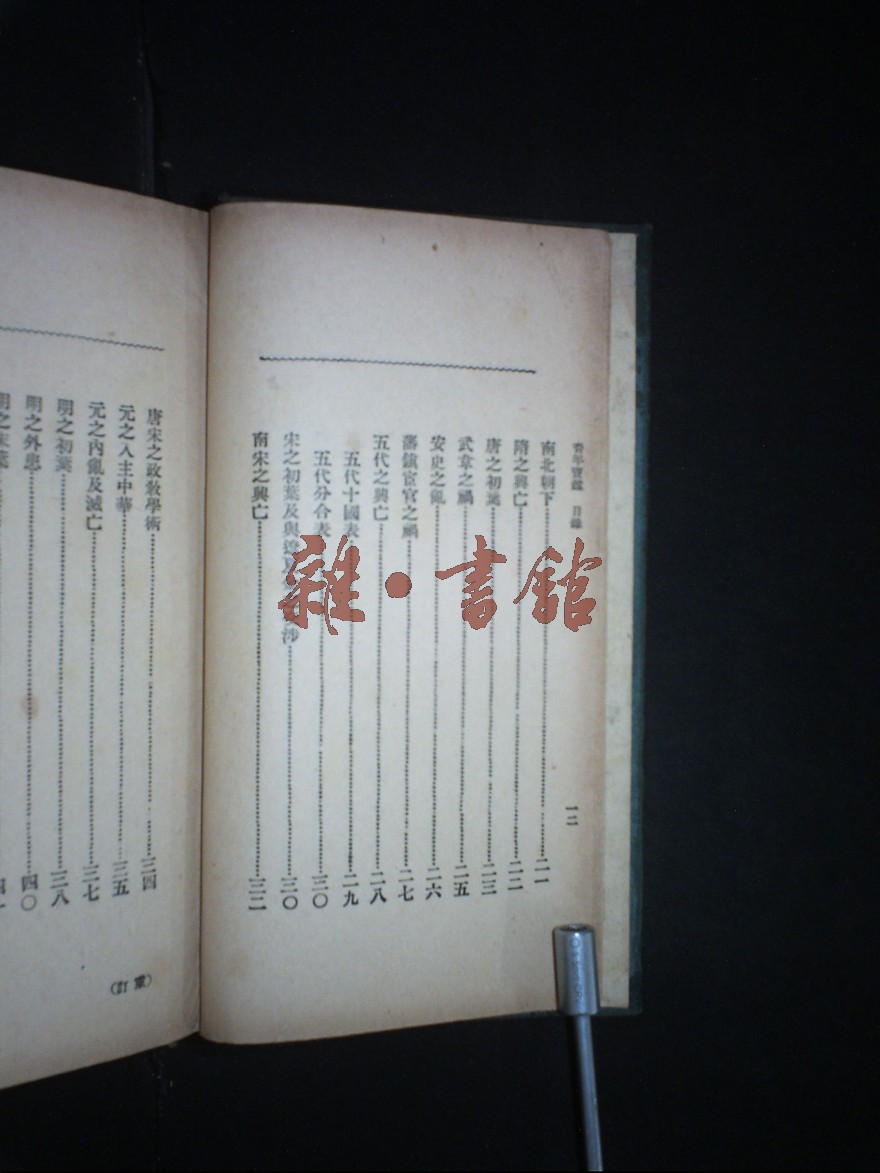 青年寶鑑 目錄
一二
南北朝下 二一
隋之興亡 二二
唐之初葉 二三
武韋之禍 二五
安史之亂 二六
藩鎮宦官之禍 二七
五代之興亡 二八
五代十國表 二九
五代分合表 三〇
宋之初葉及與遼 涉 三〇
南宋之興亡 三二
唐宋之政敎學術 三四
元之入主中華 三五
元之內亂及滅亡 三七
明之初葉 三八
明之外患 四〇
明之末葉
(重訂)
雜•書館